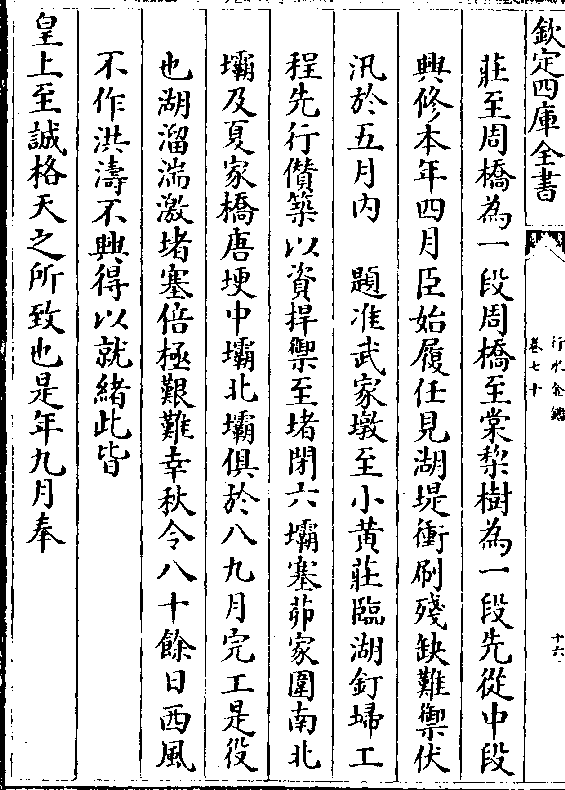 欽定四庫全書
行水金鑑
卷七十
十六
莊至周橋為一段周橋至棠棃樹為一段先從中段
興修本年四月臣始履任見湖堤衝刷殘缺難禦伏
汛於五月內 題准武家墩至小黃莊臨湖釘埽工
程先行儹築以資捍禦至堵閉六壩塞茆家圍南北
壩及夏家橋唐埂中壩北壩俱於八九月完工是役
也湖溜湍激堵塞倍極艱難幸秋令八十餘日西風
不作洪濤不興得以就緒此皆
皇上至誠格天之所致也是年九月奉